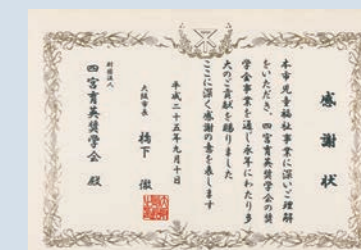 感謝状
本市児童福祉事業に深いご理解
をいただき、四宮育英奨学会の奨
学金事業を通じ永年にわたり多
大のご貢献を賜りました
ここに深く感謝の意を表します
平成二十五年九月十日
大阪市長 橋下 徹
財団法人
四宮育英奨学会 殿